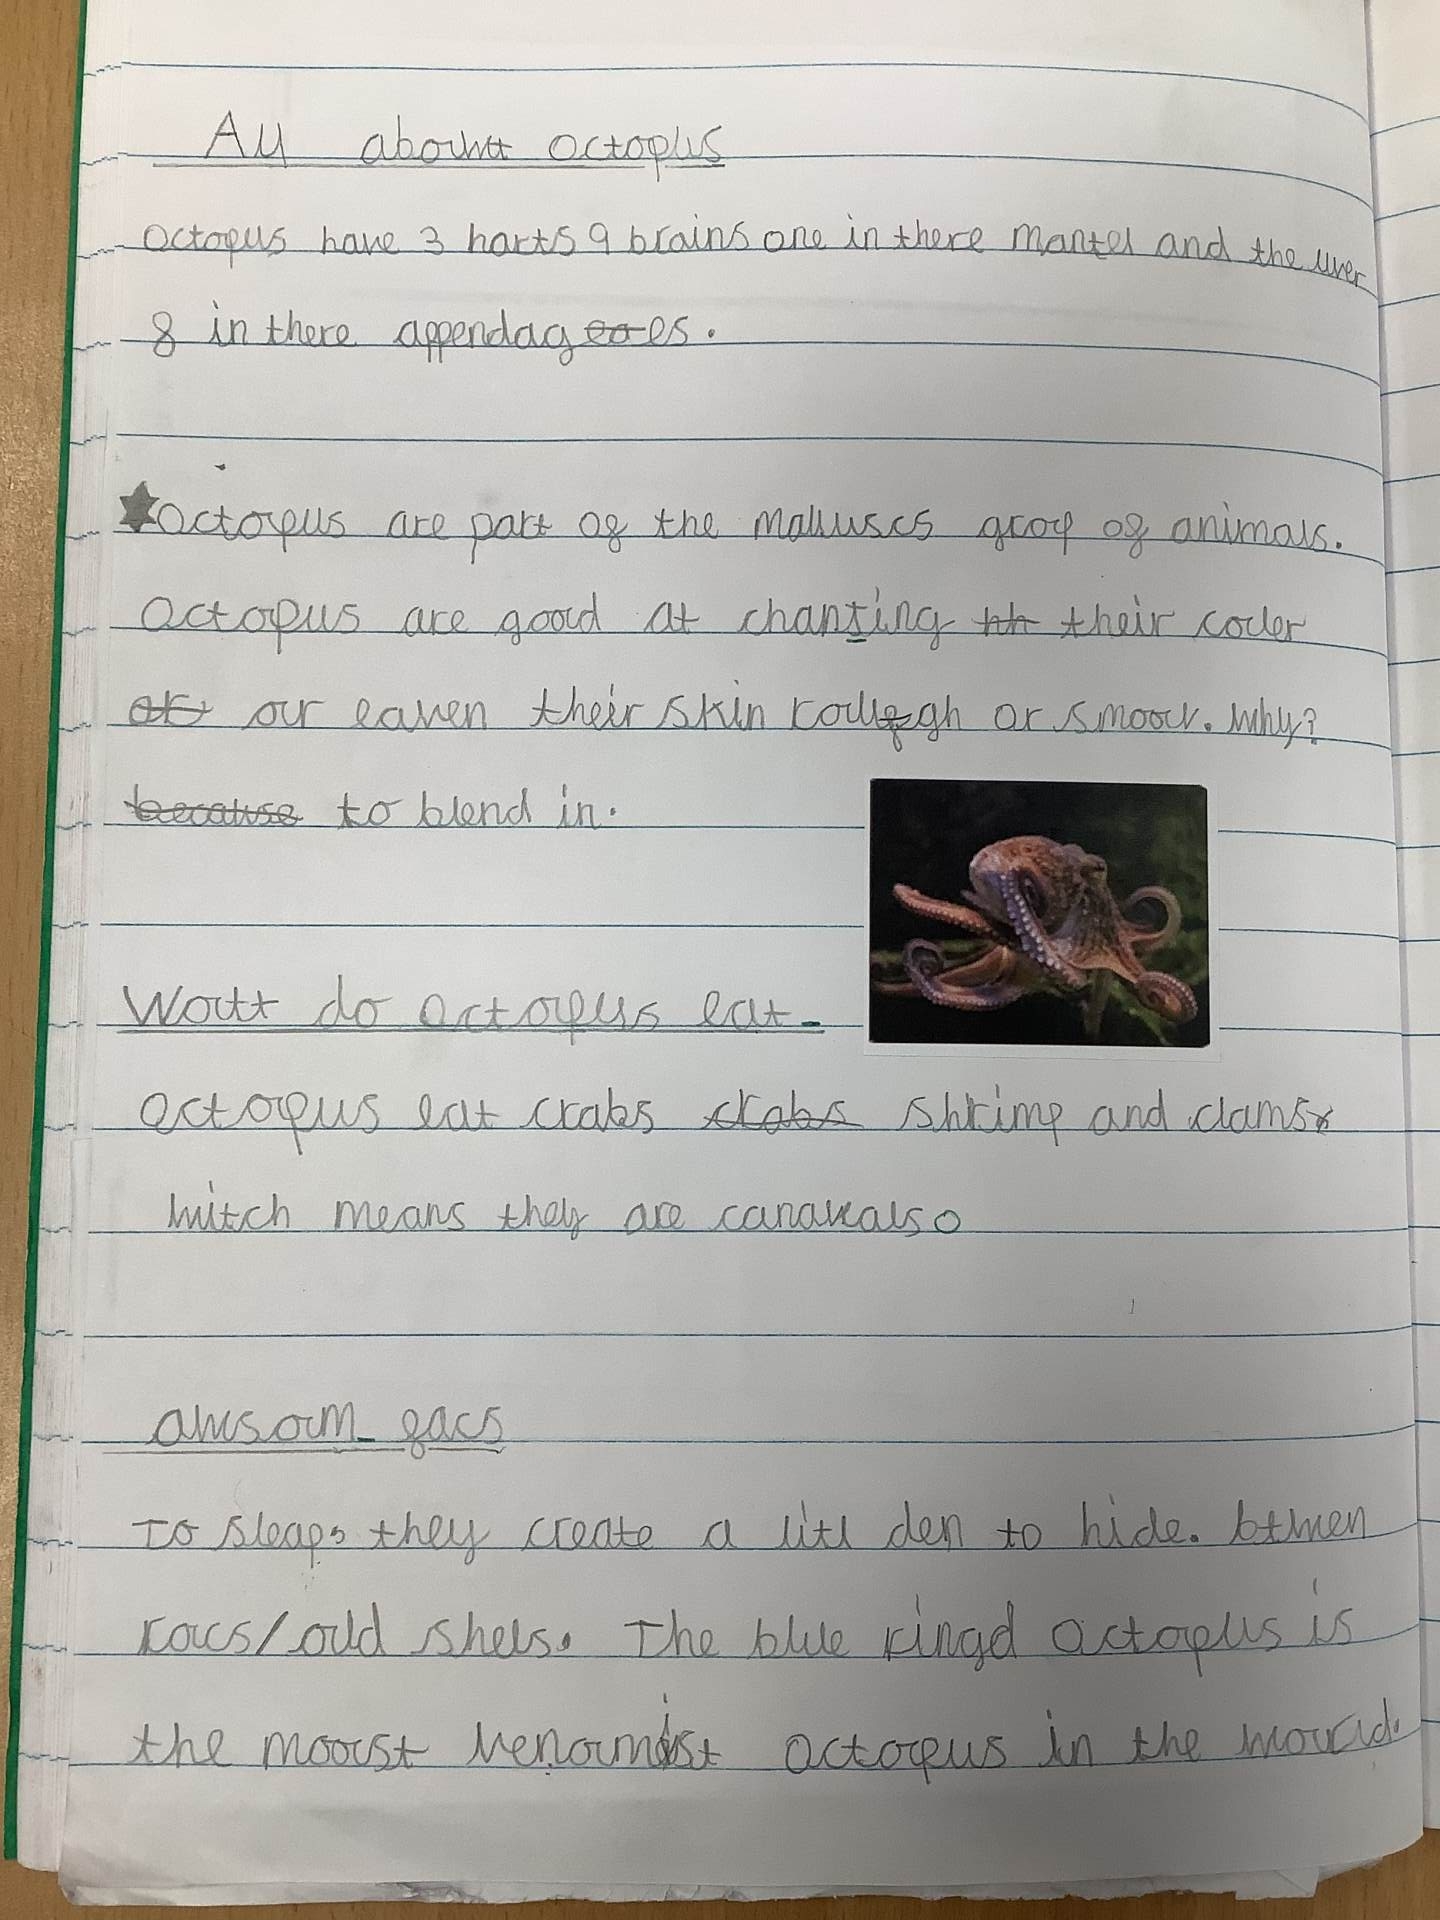 All about octopus
octopus have 3 harts 9 brains one in there mantel and the uver
8 in there appendages.
octopus are part of the malluscs groop of animals.
octopus are good at changing their coller
or eaven their skin rough or smoov. Why?
to blend in.
Watt do octopus eat
octopus eat crabs crabs shrimp and clams
witch means they are canavals.
awsom facs
To sleap, they create a litl den to hide. btwen
rocs/old shels. The blue ringd octopus is
the moast venomist octopus in the world.